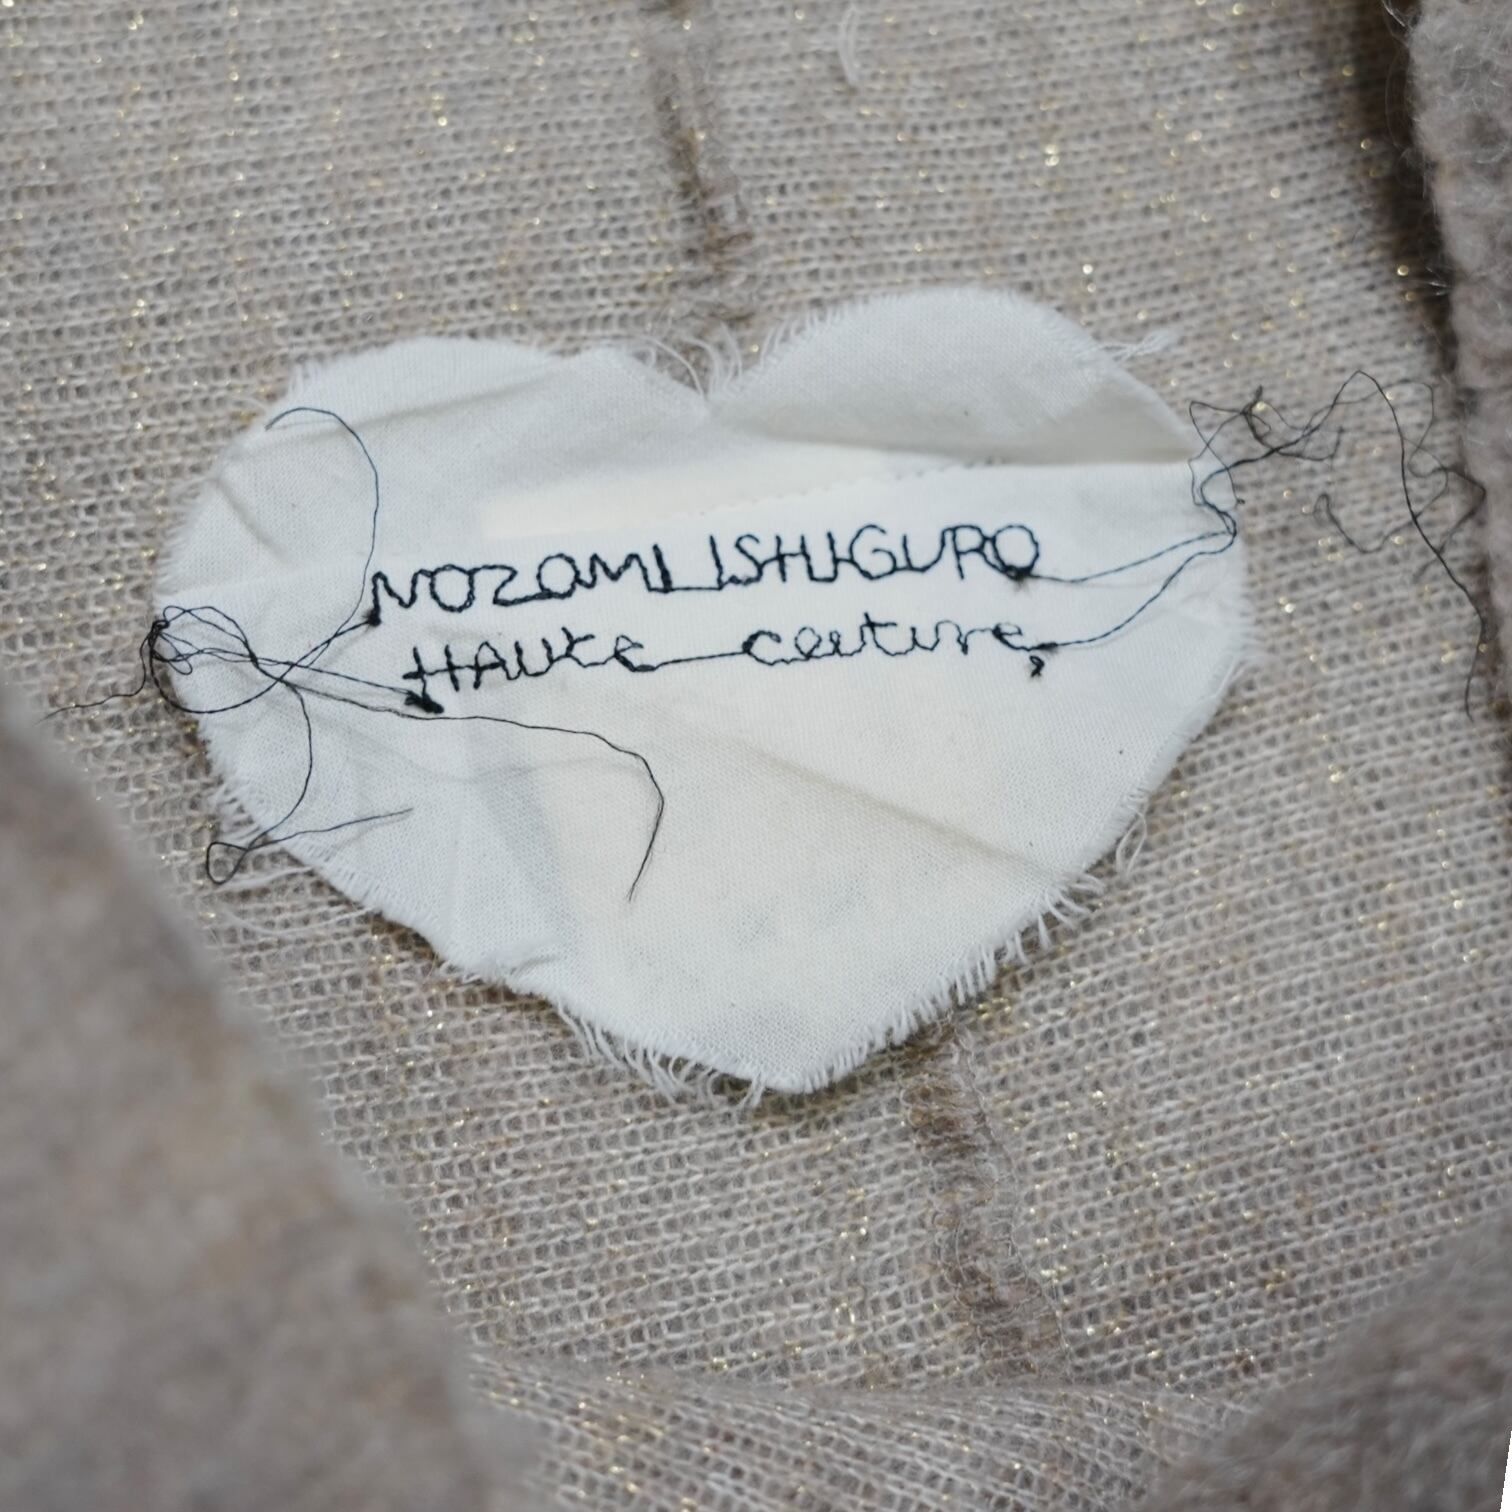 NOZOMI ISHIGURO
HAUte couture